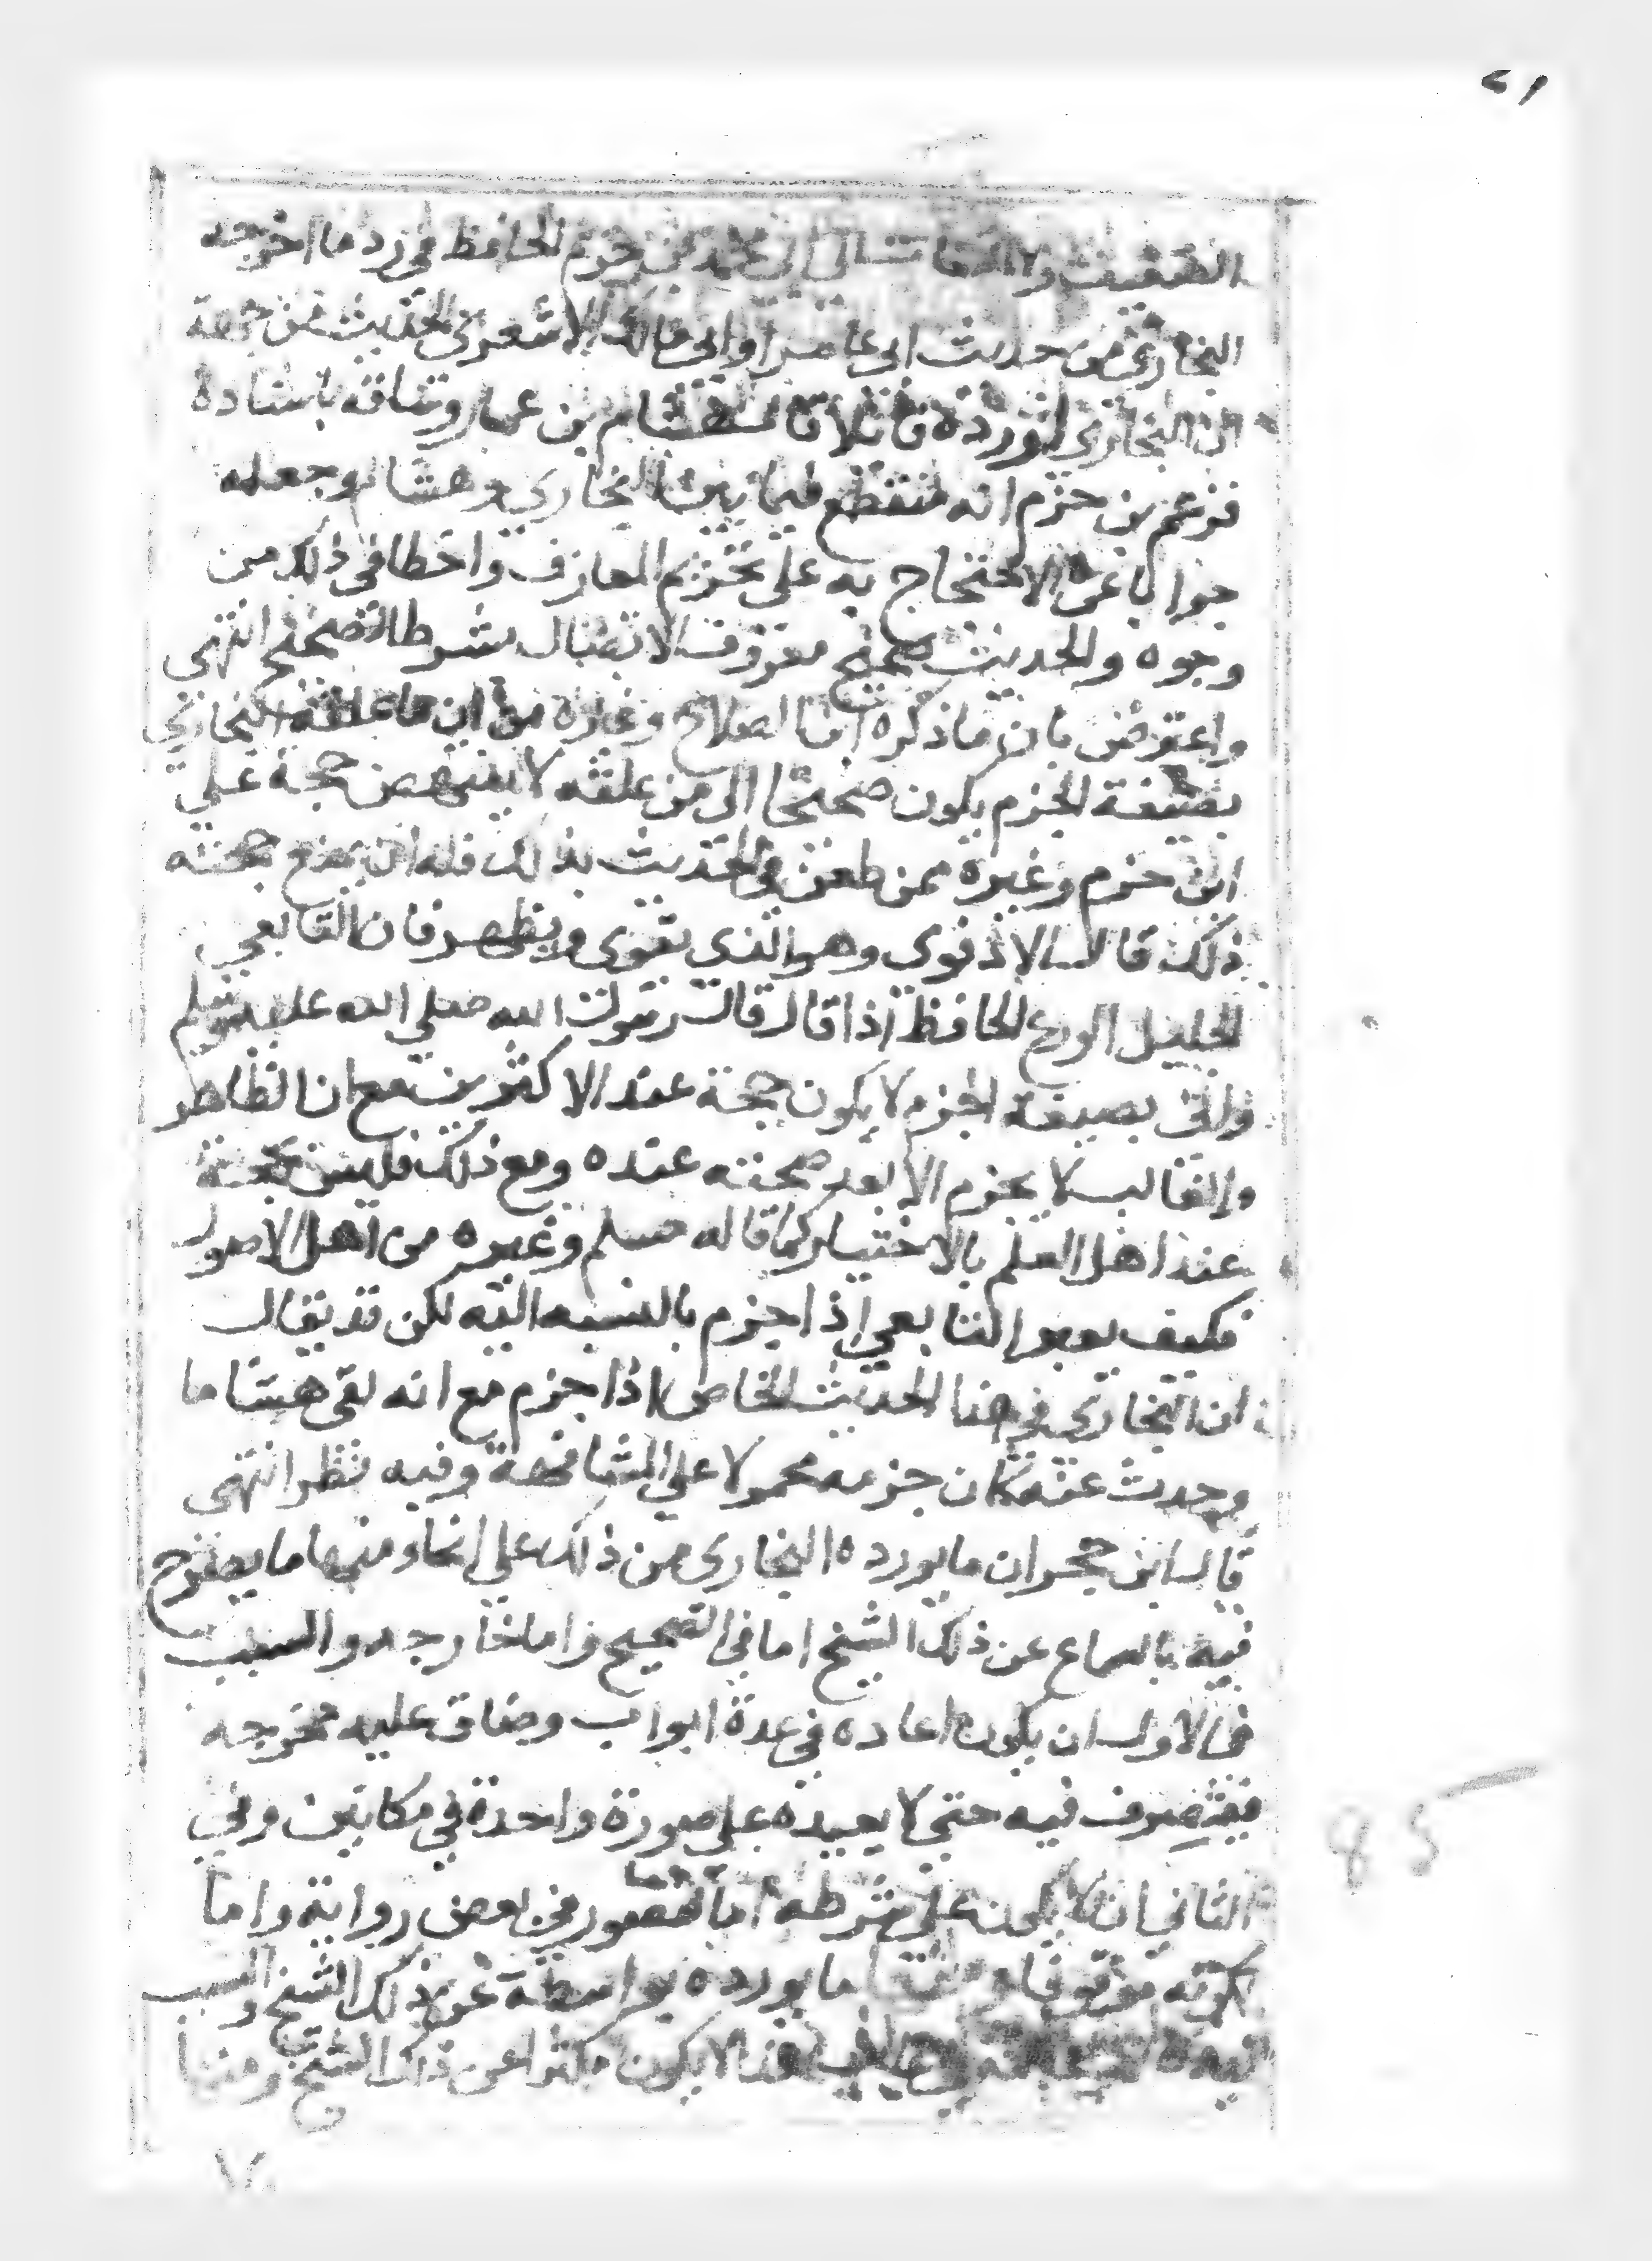 ٢١
الضعيف ولا التفات الى ابي محمد بن حزم الحافظ في رد ما اخرجه
البخاري من حديث ابي عامر او ابي مالك الاشعري الحديث من جهة
ان البخاري اورده قائلا قال هشام بن عمار وساقه باسناده
فزعم بن حزم انه منقطع فيما بين البخاري وهشام وجعله
جوابا عن الاحتجاج به على تحريم المعازف واخطا في ذلك من
وجوه والحديث صحيح معروف الاتصال بشرط الصحيح انتهى
واعترض بان ما ذكره ابن الصلاح وغيره من ان ما علقه البخاري
بصيغة الجزم يكون صحيحا الى من علقه لا ينتهض حجة على
ابن حزم وغيره ممن طعن في الحديث بذلك فله ان يمنع صحته
ذلك قال الاذفوي وهو الذي يقوى ويظهر فان التابعي
الجليل الورع الحافظ اذا قال قال رسول الله صلى الله عليه وسلم
واتى بصيغة الجزم لا يكون حجة عند الاكثرين مع ان الظاهر
والغالب لا يجزم الا بعد صحته عنده ومع ذلك فليس بحجة
عند اهل العلم بالاختيار كما قاله مسلم وغيره من اهل الاصول
فكيف بعد التابعي اذا جزم بالنسبة اليه لكن قد يقال
ان البخاري في هذا الحديث الخاص اذا جزم مع انه لقي هشاما
وحدث عنه كان جزمه محمولا على المشافهة وفيه نظر انتهى
قال ابن حجر ان ما يورده البخاري من ذلك على انحاء منها ما يصرح
فيه بالسماع عن ذلك الشيخ اما في الصحيح واما خارجه والسبب
في الاول ان يكون اعاده في عدة ابواب وضاق عليه مخرجه
فيتصرف فيه حتى لا يعيده على صورة واحدة في مكانين وفي
الثاني ان لا يكون على شرطه اما لقصور في بعض رواته واما
لكونه موقوفا ومنها ما يورده بواسطة عن ذلك الشيخ والسبب
فيه لا يكون مكثرا عن ذلك الشيخ ومنها
85
٧